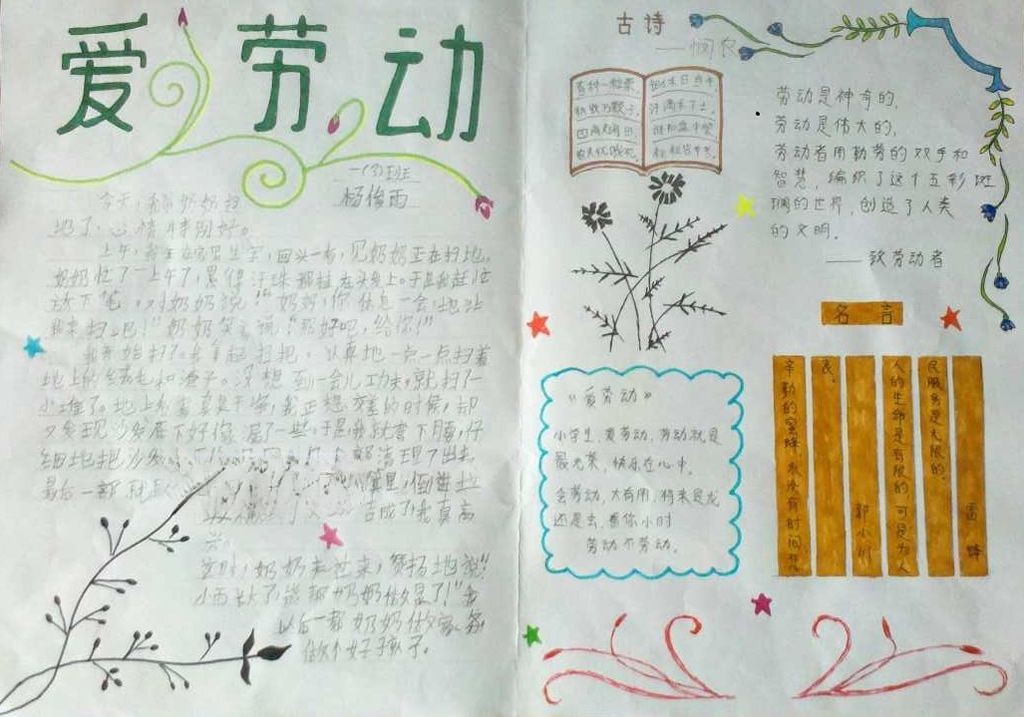 爱劳动
一(3)班
杨俊雨
今天,帮奶奶扫
地了,心情特别好。
回头一看,见奶奶正在扫地,
奶奶忙了一上午了,累得汗珠
放下笔,对奶奶说:“奶奶,你休息一会,地让
我来扫吧!”奶奶笑了说:“那好吧,给你!”
我开始扫了,拿起扫把,认真地一点一点扫着
没想到一会儿功夫,就扫了一
小堆了。地上
的时候,却
又发现沙发底下好像漏了一些,于是我就弯下腰,仔
细地把沙发
最后一
完成了!我真高
兴。
这时,奶奶走过来,赞扬地说:“
小雨长大了,能帮奶奶做家务了!”我
以后一帮奶奶做家务,
做个好孩子。
古诗
——悯农
春种一粒粟,
秋收万颗子。
四海无闲田,
农夫犹饿死。
锄禾日当午,
汗滴禾下土。
谁知盘中餐,
粒粒皆辛苦。
劳动是神奇的,
劳动是伟大的,
劳动者用勤劳的双手和
智慧,编织了这个五彩斑
斓的世界,创造了人类
的文明。
——致劳动者
名言
辛勤的蜜蜂,永没有时间悲
哀。
郭小川
人的生命是有限的可是为人
民服务是无限的,
雷锋
《爱劳动》
小学生,爱劳动,劳动就是
最光荣,快乐在心中。
会劳动,大有用,将来是龙
还是虫,看你小时
劳动不劳动。